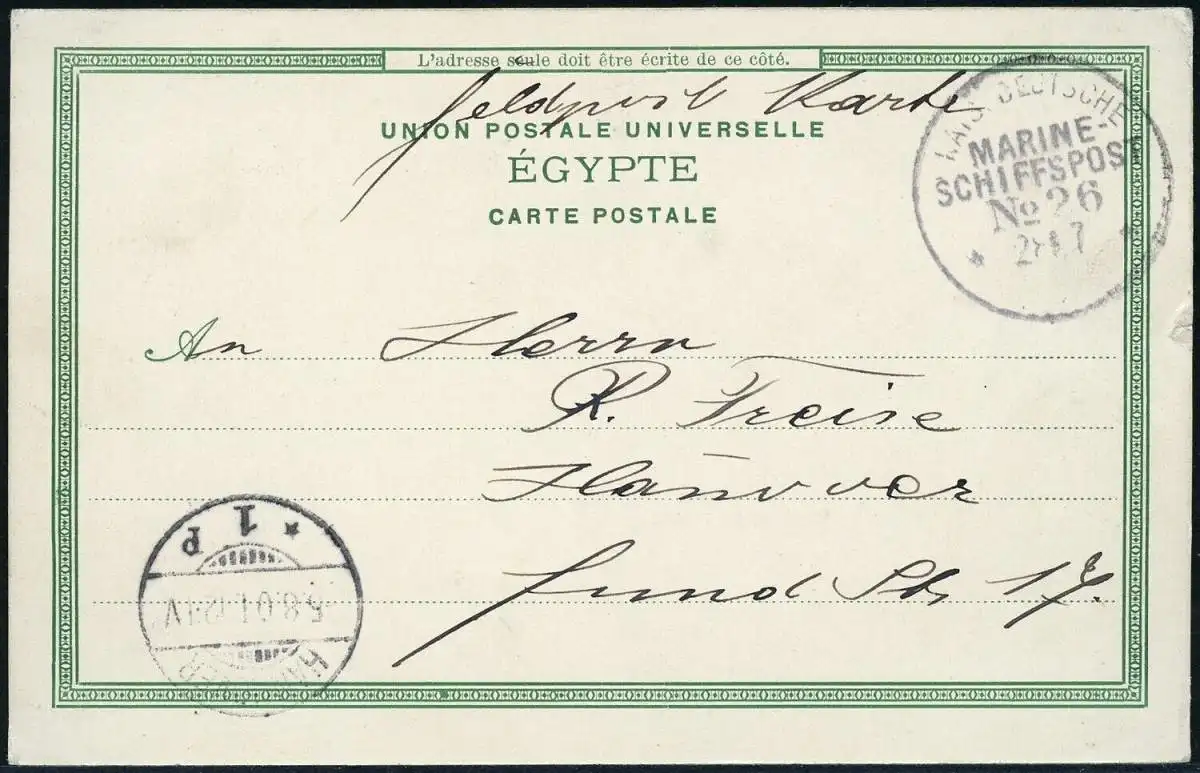 L'adresse seule doit être écrite de ce côté.
Feldpost Karte
UNION POSTALE UNIVERSELLE
ÉGYPTE
CARTE POSTALE
KAIS. DEUTSCHE
MARINE-
SCHIFFSPOST
No 26
An Herrn
R. Freise
Hanover
1 P
5.8.01.12-1V
HANNOVER